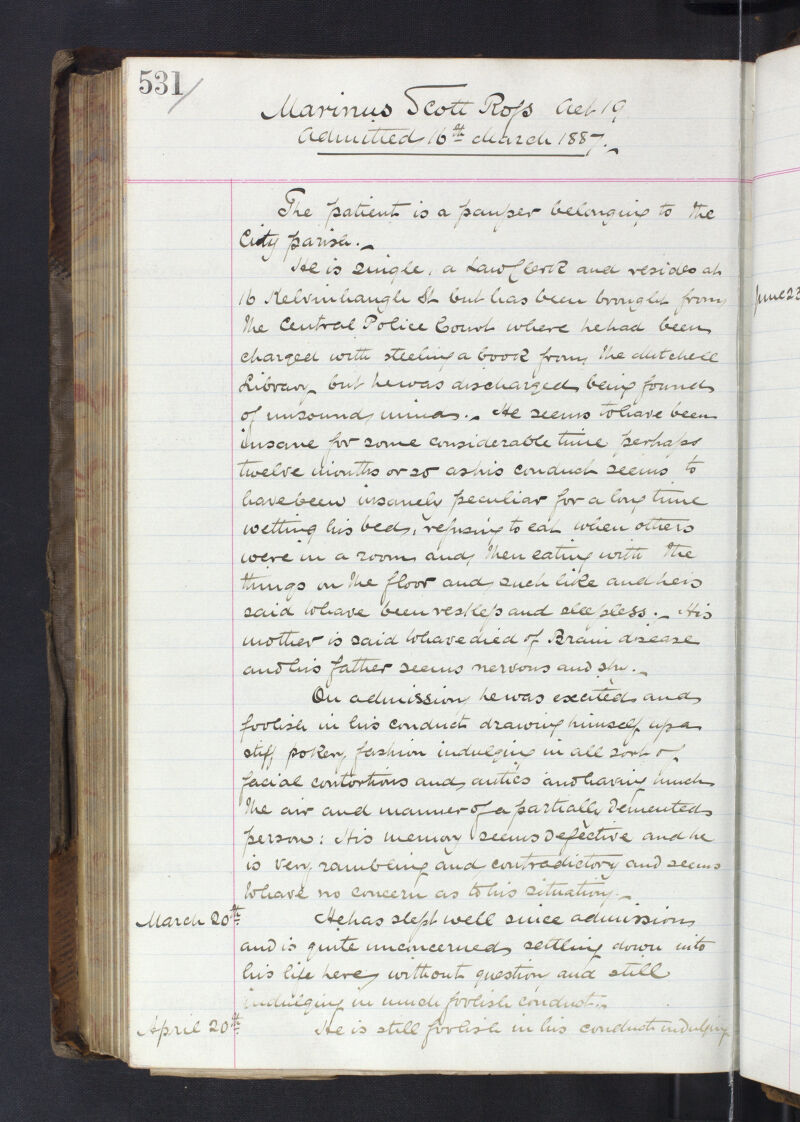 531
Marinus Scott Ross Aet 19
Admitted 16th March 1887.
The patient is a pauper belonging to the
City parish.
He is single, a Law Clerk and resides at
16 Kelvinhaugh St but has been brought from
the Central Police Court where he had been
charged with steeling a book from the Mitchell
Library but he was discharged being found
of unsound mind. He seems to have been
insane for some considerable time perhaps
twelve months or so as his conduct seems to
have been insanely peculiar for a long time
wetting his bed, refusing to eat when others
were in a room and then eating with the
things on the floor and such like and he is
said to have been restless and sleepless. His
mother is said to have died of Brain disease
and his father seems nervous and shy.
On admission he was excited and
foolish in his conduct drawing himself up a
stiff pokery fashion indulging in all sort of
facial contortions and antics and having much
the air and manner of a partially demented
person: His memory seems defective and he
is very rambling and contradictory and seems
to have no concern as to his situation.
March 20th He has slept well since admission
and is quite unconcerned settling down into
his life here without question and still
indulging in much foolish conduct.
April 20th He is still foolish in his conduct indulging
June 22